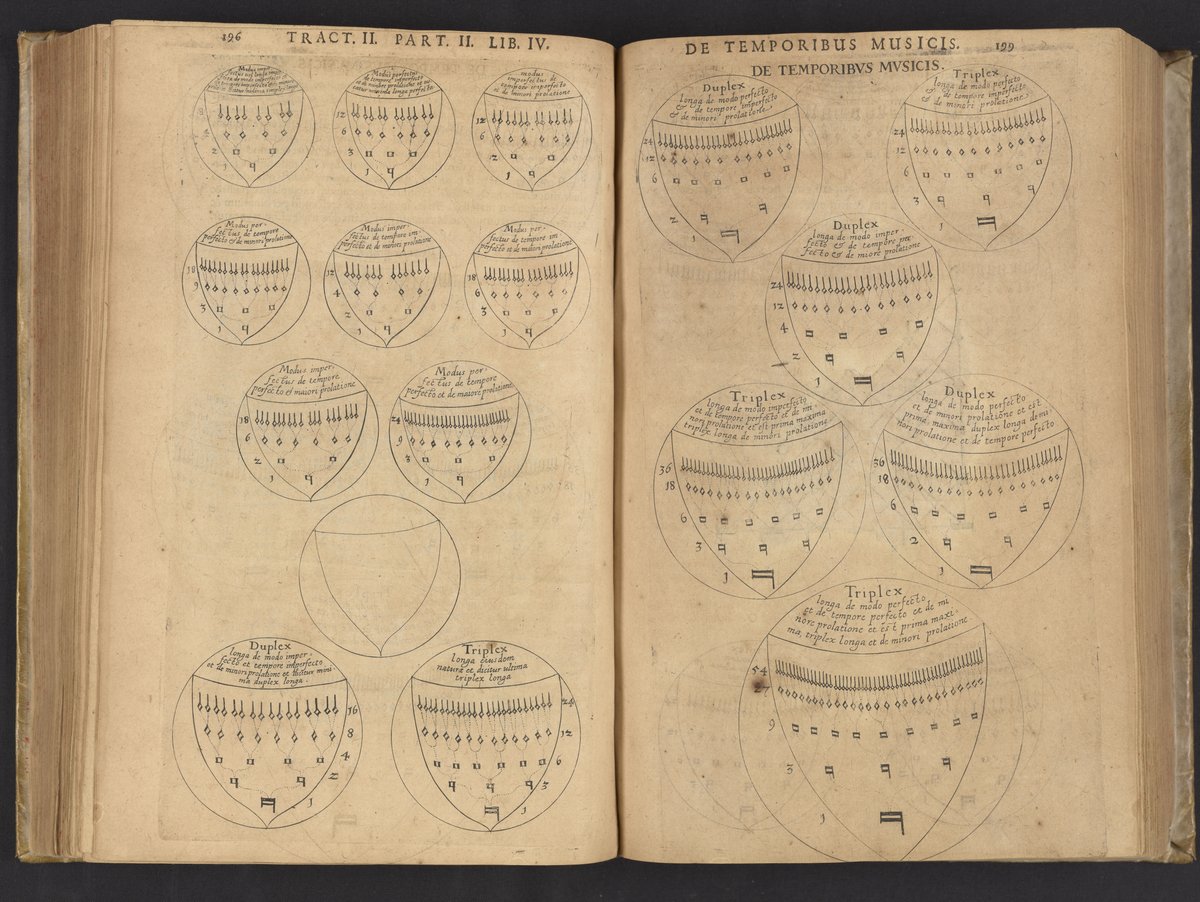 196 TRACT. II. PART. II. LIB. IV.
Modus imper-
fectus
8
4
2
1
Modus perfectus
de tempore imperfecto
et de minori prolatione
longa perfecto
12
6
3
1
modus
imperfectus de
tempore imperfecto
et de minori prolatione
12
6
2
1
Modus per-
fectus de tempore
perfecto & de minori prolatione
18
9
3
1
Modus imper-
fectus de tempore im-
perfecto et de minori prolatione
12
4
2
1
Modus per-
fectus de tempore im-
perfecto et de maiori prolatione
18
6
3
1
Modus imper-
fectus de tempore
perfecto & maiori prolatione
18
6
2
1
Modus per-
fectus de tempore
perfecto et de maiore prolatione
24
9
3
1
Duplex
longa de modo imper-
fecto et tempore imperfecto
et de minori prolatione et dicitur mini
ma duplex longa.
16
8
4
2
1
Triplex
longa eiusdem
naturæ et dicitur ultima
triplex longa
24
12
6
3
1
DE TEMPORIBUS MUSICIS. 199
DE TEMPORIBVS MVSICIS.
Duplex
longa de modo perfecto
& de tempore imperfecto
& de minori prolatione
24
12
6
2
1
Triplex
longa de modo perfecto
& de tempore imperfecto
& de minori prolatione
24
12
6
3
1
Duplex
longa de modo imper-
fecto & de tempore per
fecto & de miore prolatione
24
12
4
2
1
Triplex
longa de modo imperfecto
et de tempore perfecto et de mi-
nori prolatione et est prima maxima
triplex longa de minori prolatione
36
18
6
3
1
Duplex
longa de modo perfecto
et de minori prolatione et est
prima maxima duplex longa demi-
nori prolatione et de tempore perfecto
36
18
6
2
1
Triplex
longa de modo perfecto
et de tempore perfecto et de mi
nore prolatione et est prima maxi-
ma, triplex longa et de minori prolatione
54
27
9
3
1